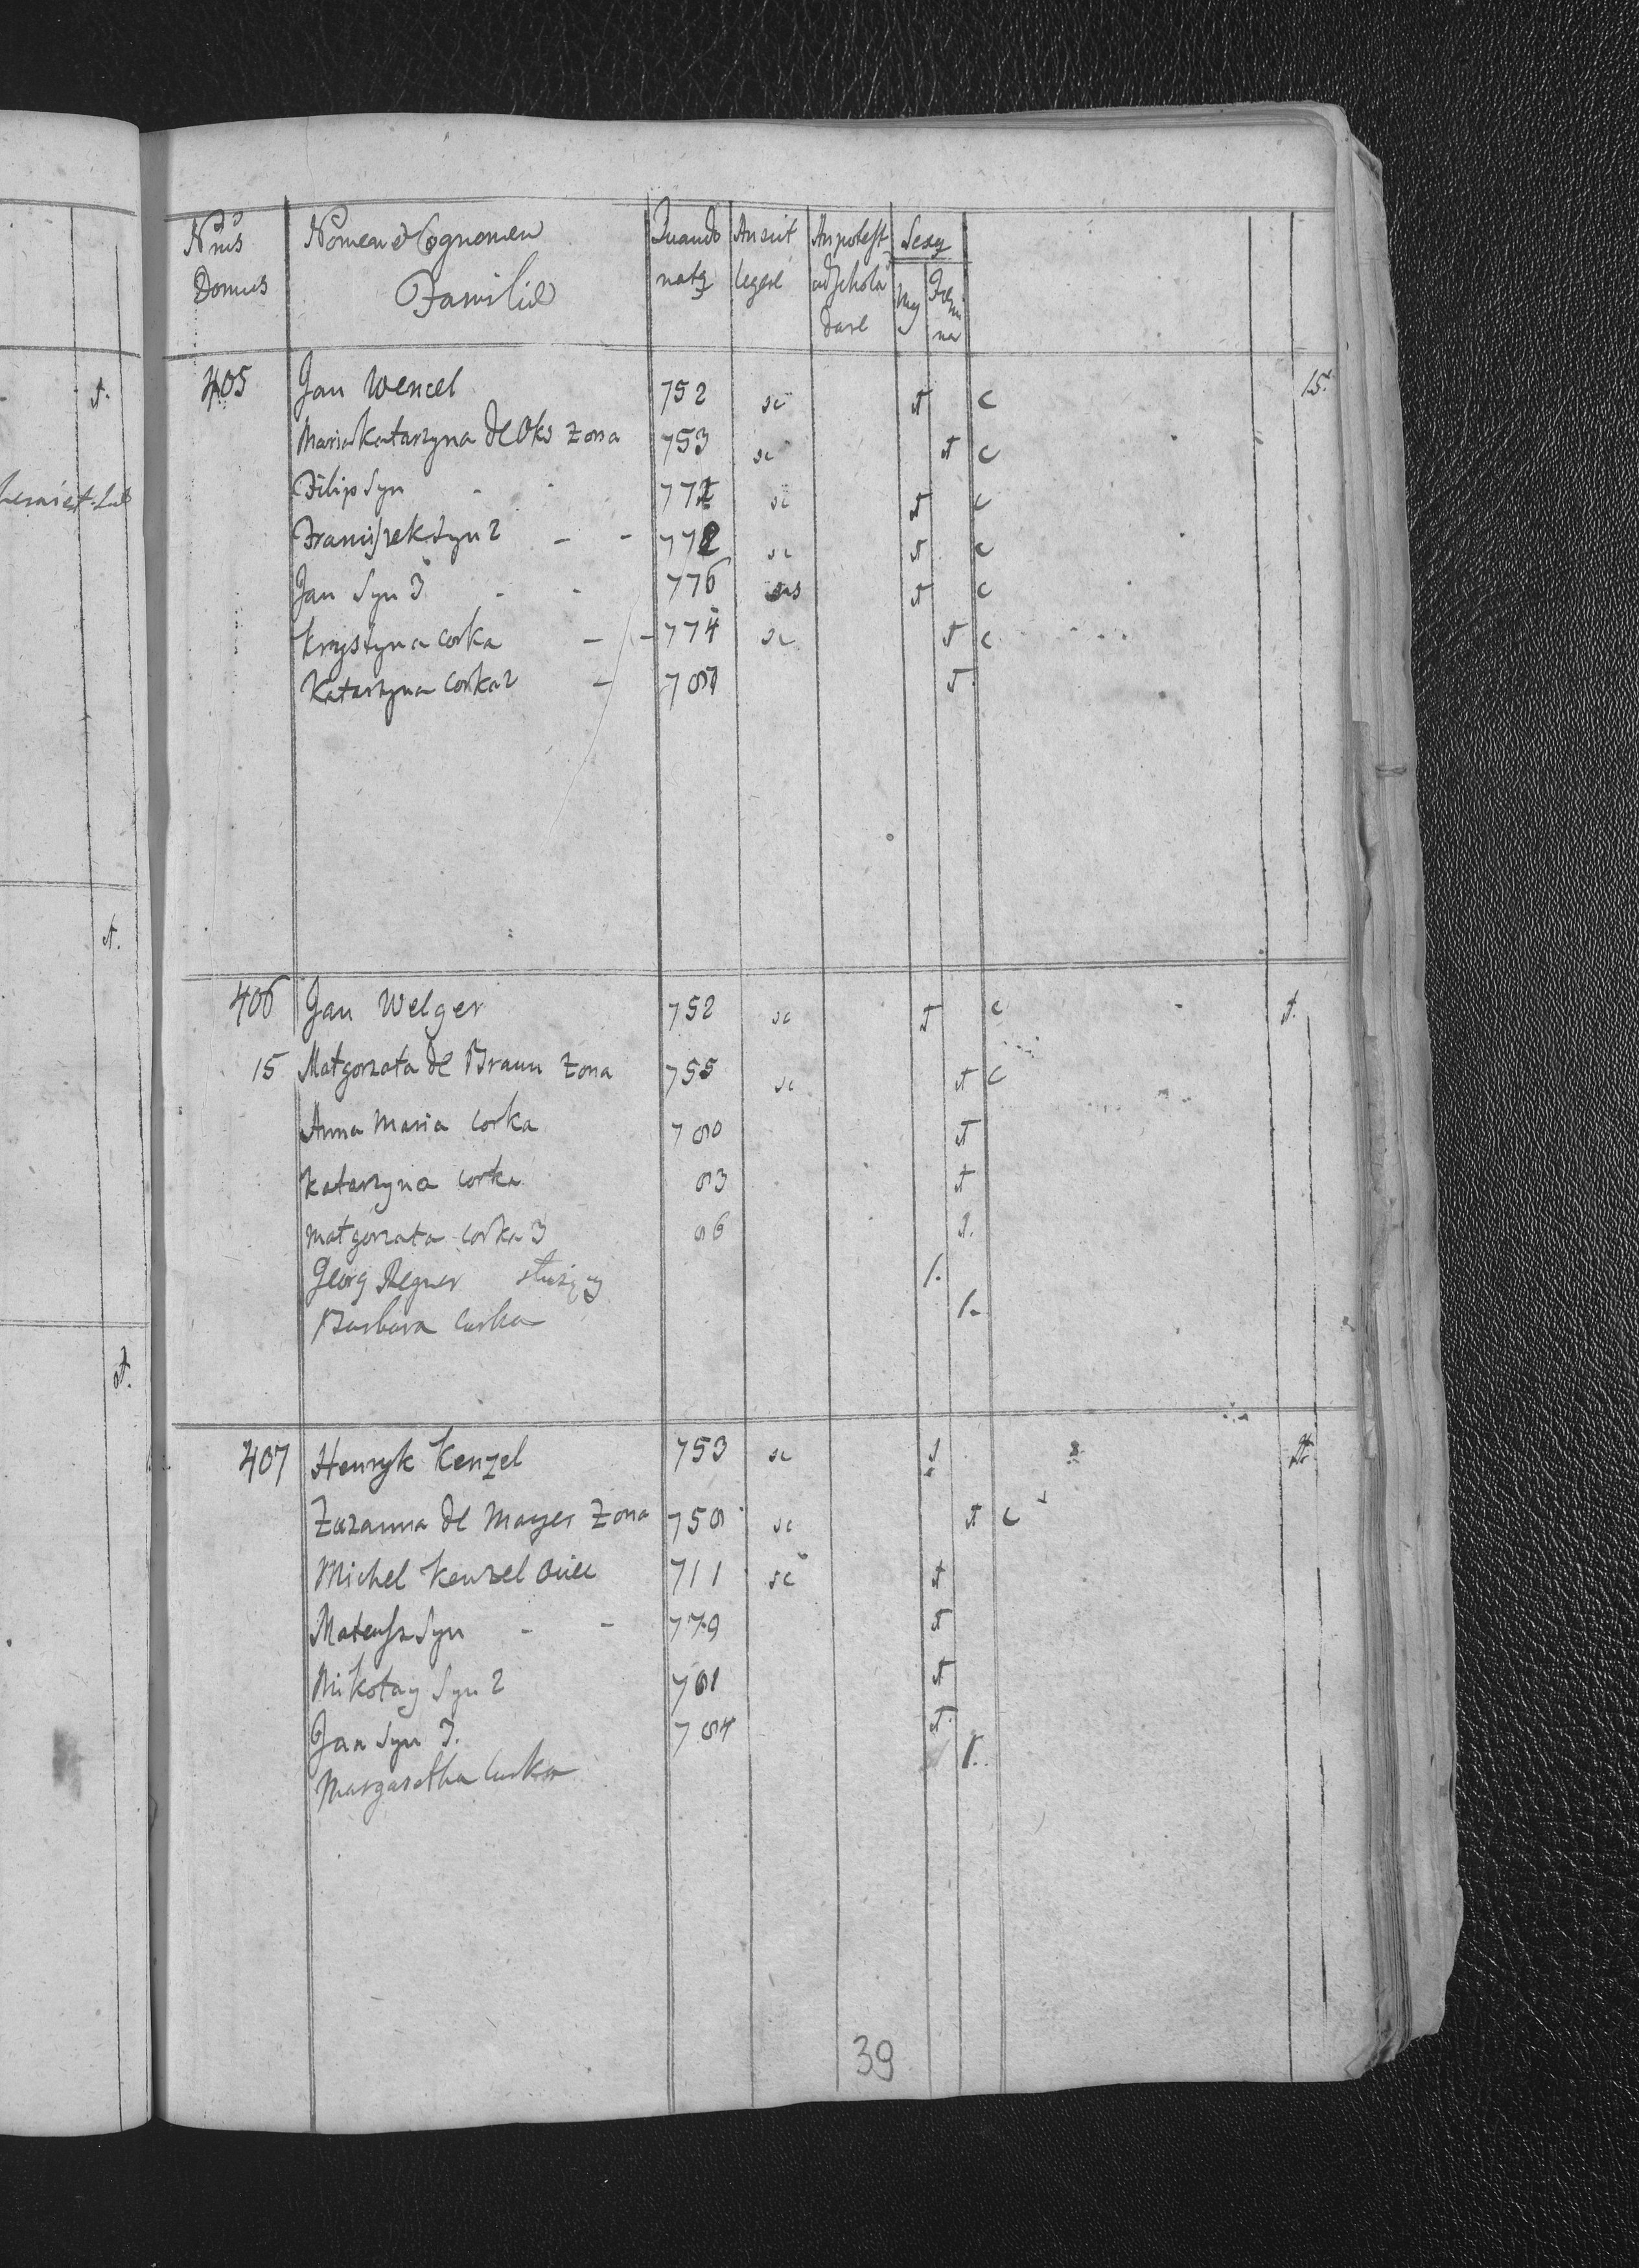 Nrus Domus Nomen et Cognomen Familiae Quando natq An scit legere An potest ad schola dare Sexq Mas Femina
405 Jan Wencel 752 sc 1 c 15.
Maria Katarzyna de Oks Zona 753 sc 1 c
Filip Syn - - 772 sc 1 c
Franciszek Syn 2 - - 772 sc 1 c
Jan Syn 3 - - 776 1 c
Krystyna corka - - 774 sc 1 c
Katarzyna corka 2 - 787 1.
406 Jan Welger 752 sc 1 c 1.
15 Małgorzata de Braun Zona 755 sc 1 c
Anna Maria corka 780 1
Katarzyna corka 83 1
Małgorzata corka 3 86 1.
Georg Regner służący 1.
Barbara curka 1.
407 Henryk Kenzel 753 sc 1
Zuzanna de Mayer Zona 758 sc 1 c
Michel Kenzel Oiiec 711 sc 1
Mateusz Syn - - 779 1
Mikołay Syn 2 781 1
Jan Syn 3. 784 1.
Margaretha curka 1.
39